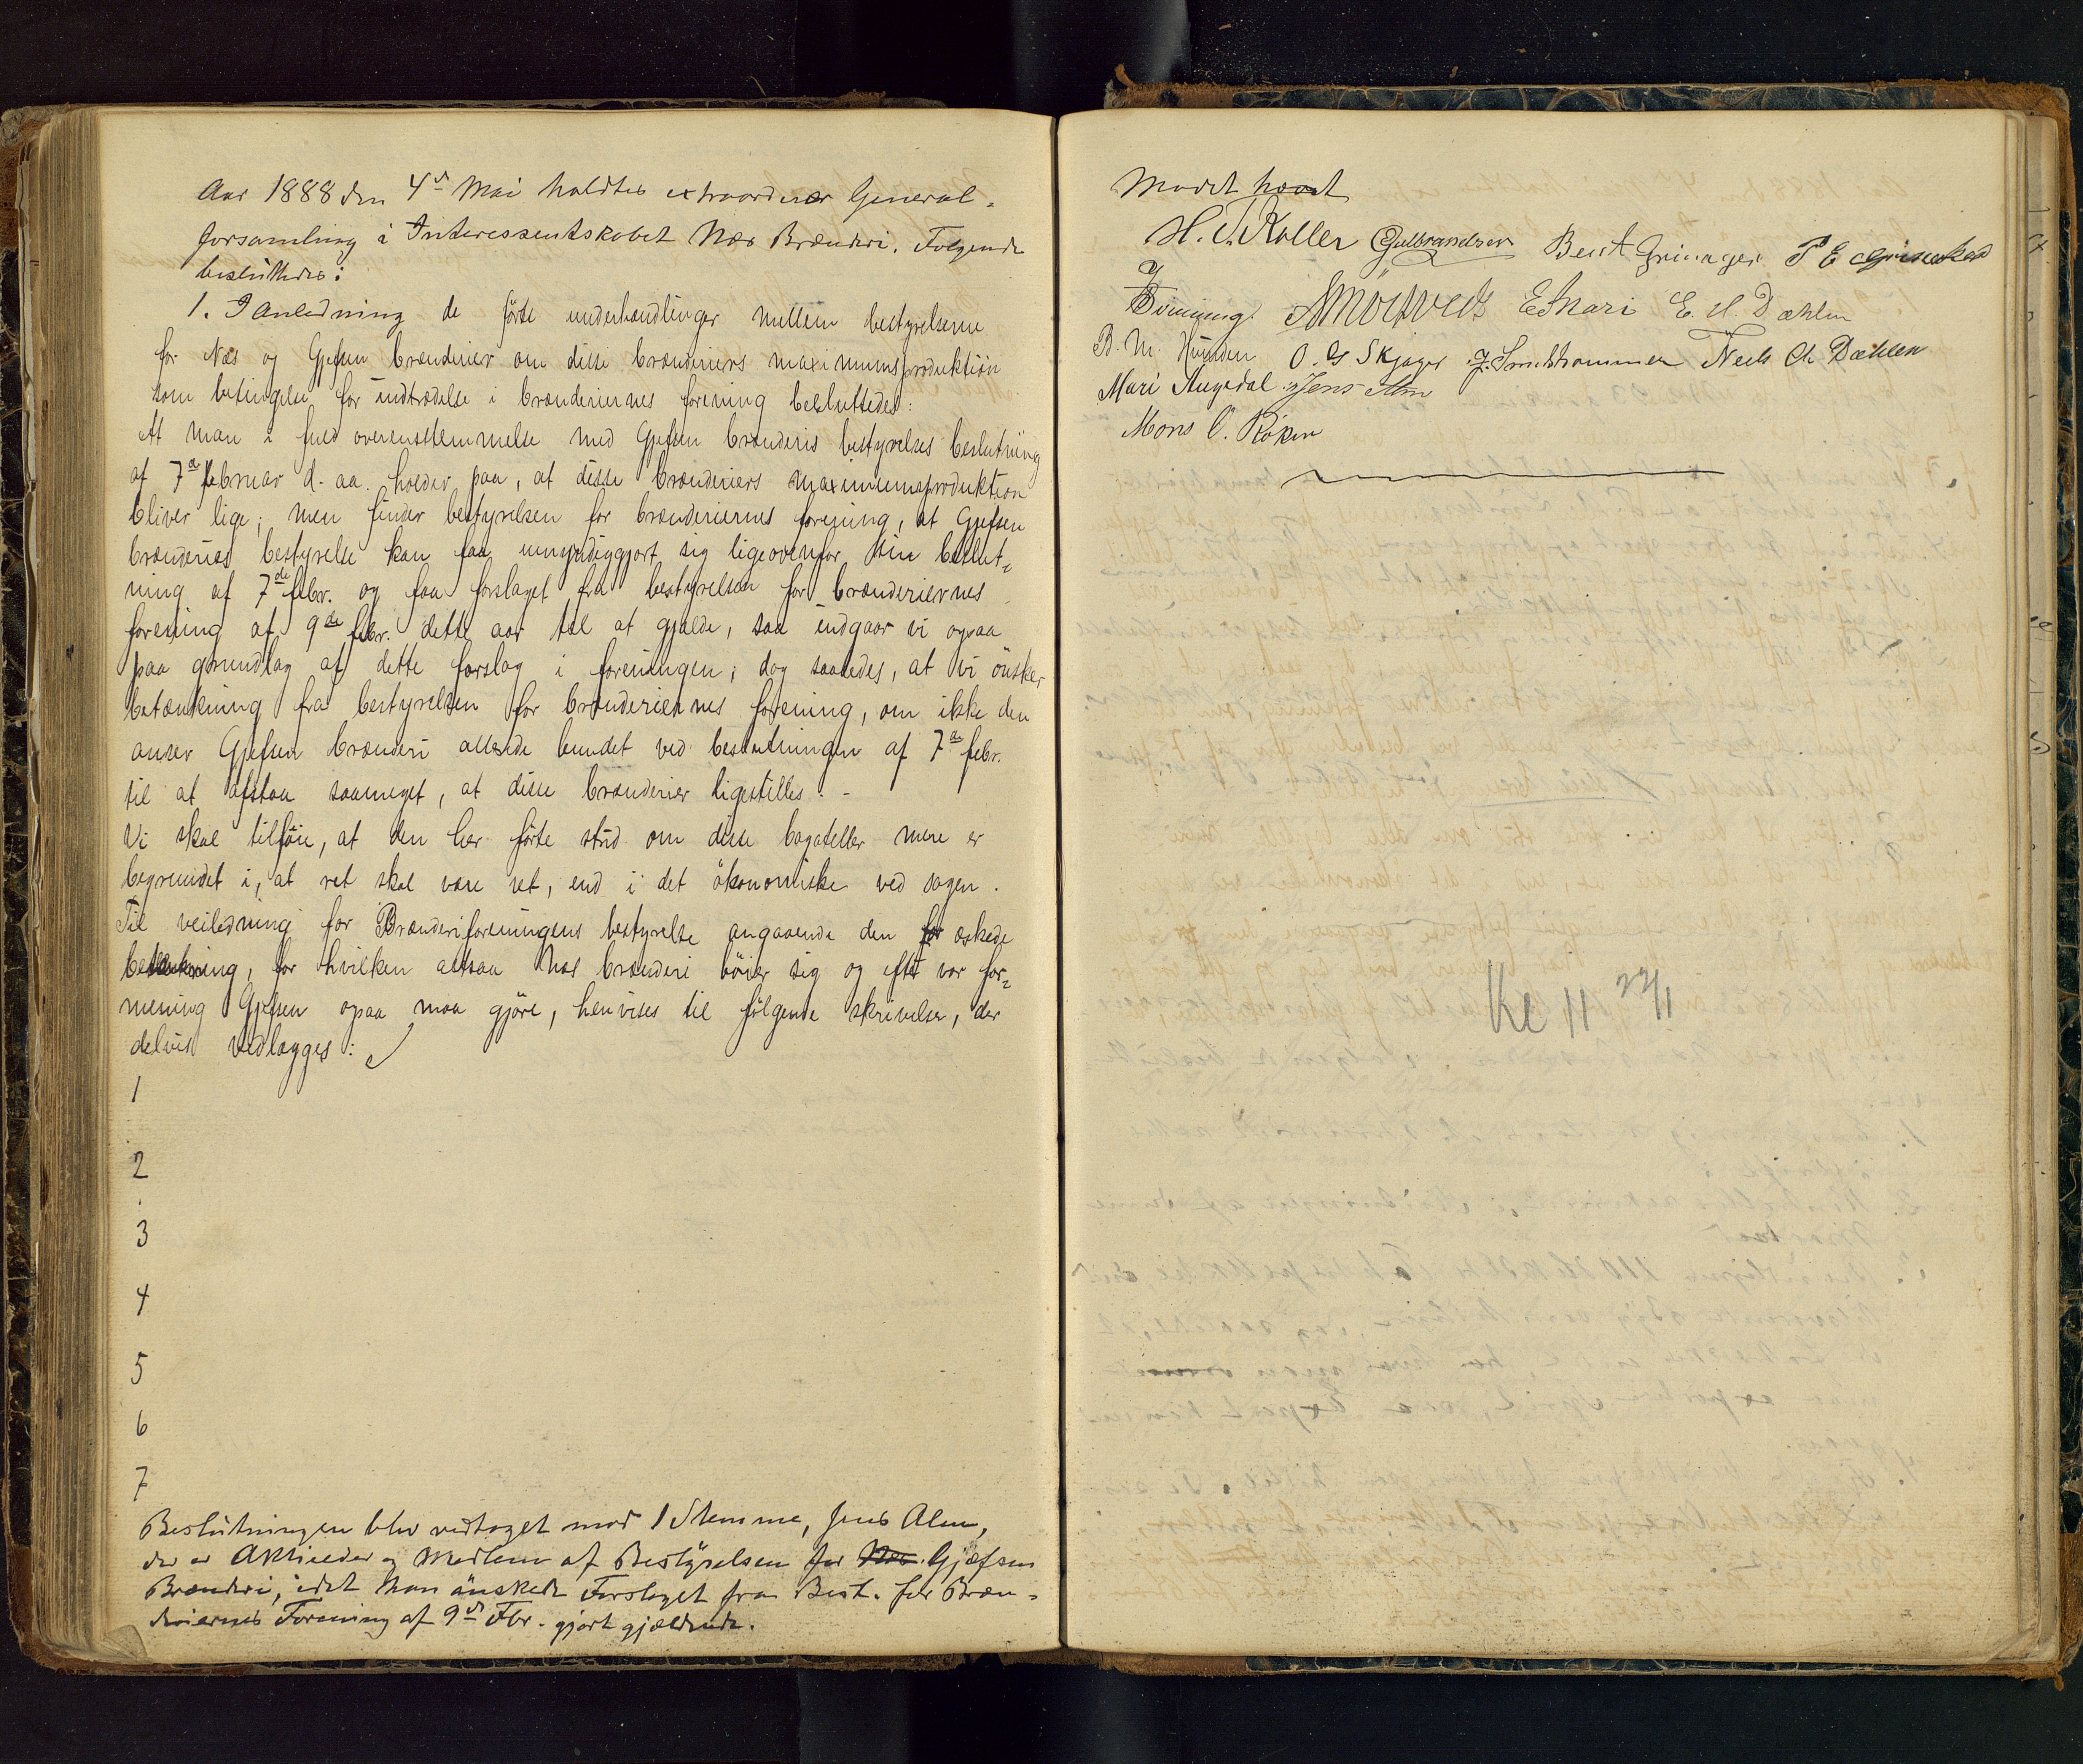 Aar 1888 den 4de Mai holdtes extraordinær General-
forsamling i Interessentskabet Næs Brænderi. Følgende
besluttedes:
1. I Anledning de førte underhandlinger mellem bestyrelserne
for Næs og Gjefsen brænderier om disse brænderiers maximumsproduktion
som betingelse for indtrædelse i brænderiernes forening besluttedes:
At man i fuld overensstemmelse med Gjefsen brænderis bestyrelses beslutning
af 7de februar d. aa. holder paa, at disse brænderiers maximumsproduktion
bliver lige; men finder bestyrelsen for brænderiernes forening, at Gjefsen
brænderies bestyrelse kan faa umyndiggjort sig ligeoverfor sin beslut-
ning af 7de febr. og faa forslaget fra bestyrelsen for brænderiernes
forening af 9de febr. dette aar til at gjælde, saa indgaar vi ogsaa
paa grundlag af dette forslag i foreningen; dog saaledes, at vi önsker
betænkning fra bestyrelsen for brænderiernes forening, om ikke den
anser Gjefsen brænderi allerede bundet ved beslutningen af 7de febr.
til at afstaa saameget, at disse brænderier ligestilles. -
Vi skal tilföie, at den her förte strid om disse bagateller mere er
begrundet i, at ret skal være ret, end i det ökonomiske ved sagen.
Til veiledning for Brænderiforeningens bestyrelse angaaende den for æskede
betænkning, for hvilken altsaa Næs brænderi böier sig og efter vor for-
mening Gjefsen ogsaa maa gjöre, henvises til fölgende skrivelser, der
delvis vedlægges:
1
2
3
4
5
6
7
Beslutningen blev vedtaget mod 1 Stemme, Jens Alm,
der er Aktieeder og Medlem af Bestyrelsen for Næs Gjæfsen
Brænderi, idet han ønskede Forslaget fra Best. for Bræn-
deriernes Forening af 9de Fbr. gjort gjældende.
Mødet hævet
H. Koller Gulbrandsen Bent Grinager P E Grinaker
E Skari E. H. Dæhlen
B. M. Hvinden O. G Skjager J. Smedshammer Neels Ch. Dæhlen
Mari Augedal Jens Alm
Mons O. Røken
Kl 11 22/11